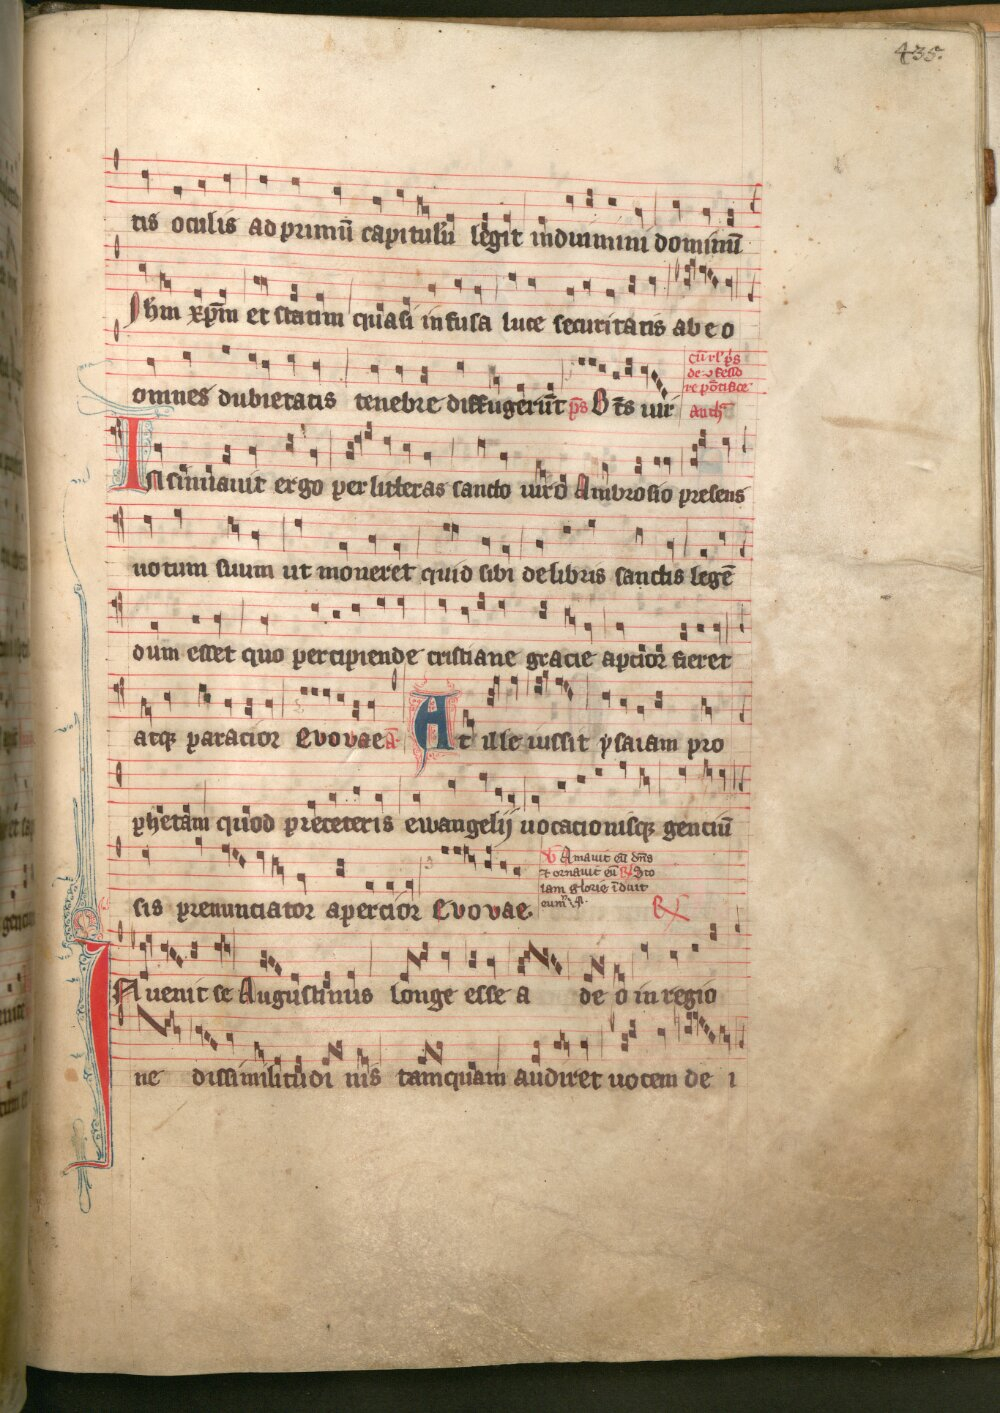 435.
tis oculis ad primū capitulū legit induimini dominū
Ihm xp̄m et statim quasi infusa luce securitatis ab eo
omnes dubietatis tenebre diffugerūt p̄s B t̄s uir
cū rl' p̄s
de 9fesso
re pōtifice
Anth̄
Insinuauit ergo per litteras sancto uiro Ambrosio presens
uotum suum ut moneret quid sibi de libris sanctis legē
dum esset quo percipiende cristiane gracie apcior fieret
atqꝫ paracior Evovae ā At ille iussit ysaiam pro
phetam quod pre ceteris ewangelij uocacionisqꝫ genciū
sis prenunciator apercior Evovae
V Amauit eū dn̄s
⁊ ornauit eū R Sto
lam glorie īduit
eum
R
Inuenit se Augustinus longe esse a de o in regio
ne dissimilitudi nis tamquam audiret uocem de i